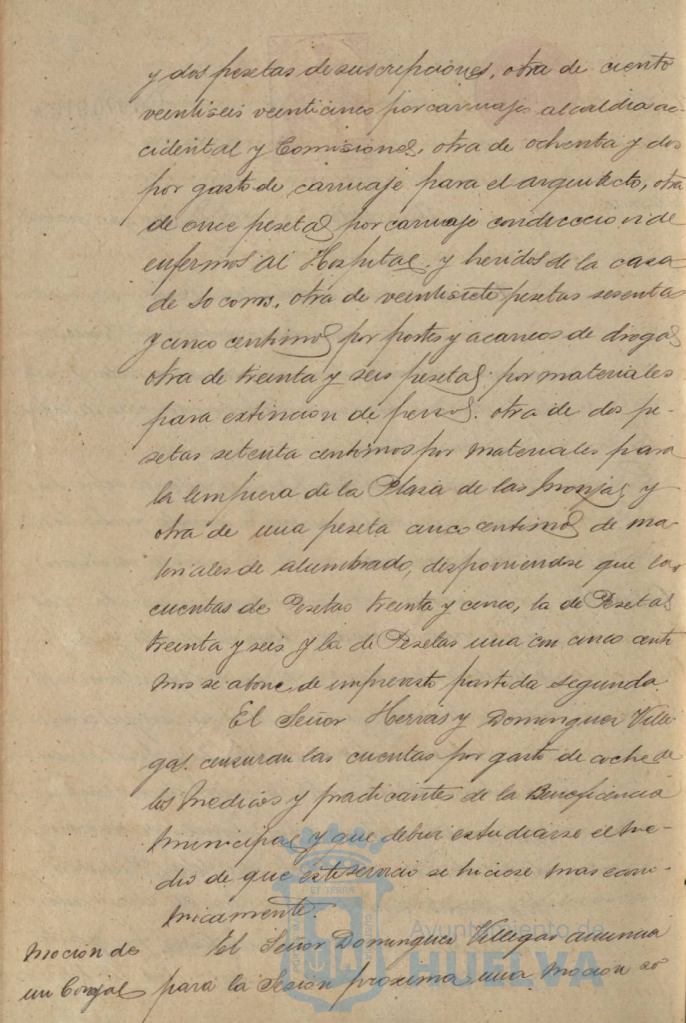 y dos pesetas de suscripciones, otra de ciento
veintiseis veinticinco por carruajes alcaldia ac-
cidental y Comisiones, otra de ochenta y dos
por gasto de carruaje para el arquitecto, otra
de once pesetas por carruaje conduccion de
enfermos al Hospital y heridos de la casa
de Socorro, otra de veintisiete pesetas sesenta
y cinco centimos por portes y acarreos de drogas
otra de treinta y seis pesetas por materiales
para extincion de perros. otra de dos pe-
setas setenta centimos por materiales para
la limpieza de la Plaza de las Monjas y
otra de una peseta cinco centimos de ma-
teriales de alumbrado, disponiendose que las
cuentas de Pesetas treinta y cinco, la de Pesetas
treinta y seis y la de Pesetas una con cinco centi
mos se abone de imprevisto partida segunda.
El Señor Hervas y Dominguez Ville
gas censuran las cuentas por gasto de coche de
los Medicos y practicantes de la Beneficencia
Municipal y que debia estudiarse el me-
dio de que este servicio se hiciese mas econo-
micamente.
Mocion de El Señor Dominguez Villegas anuncia
un Concejal para la Sesion proxima una mocion so
ET TERRAE
Ayuntamiento de
HUELVA